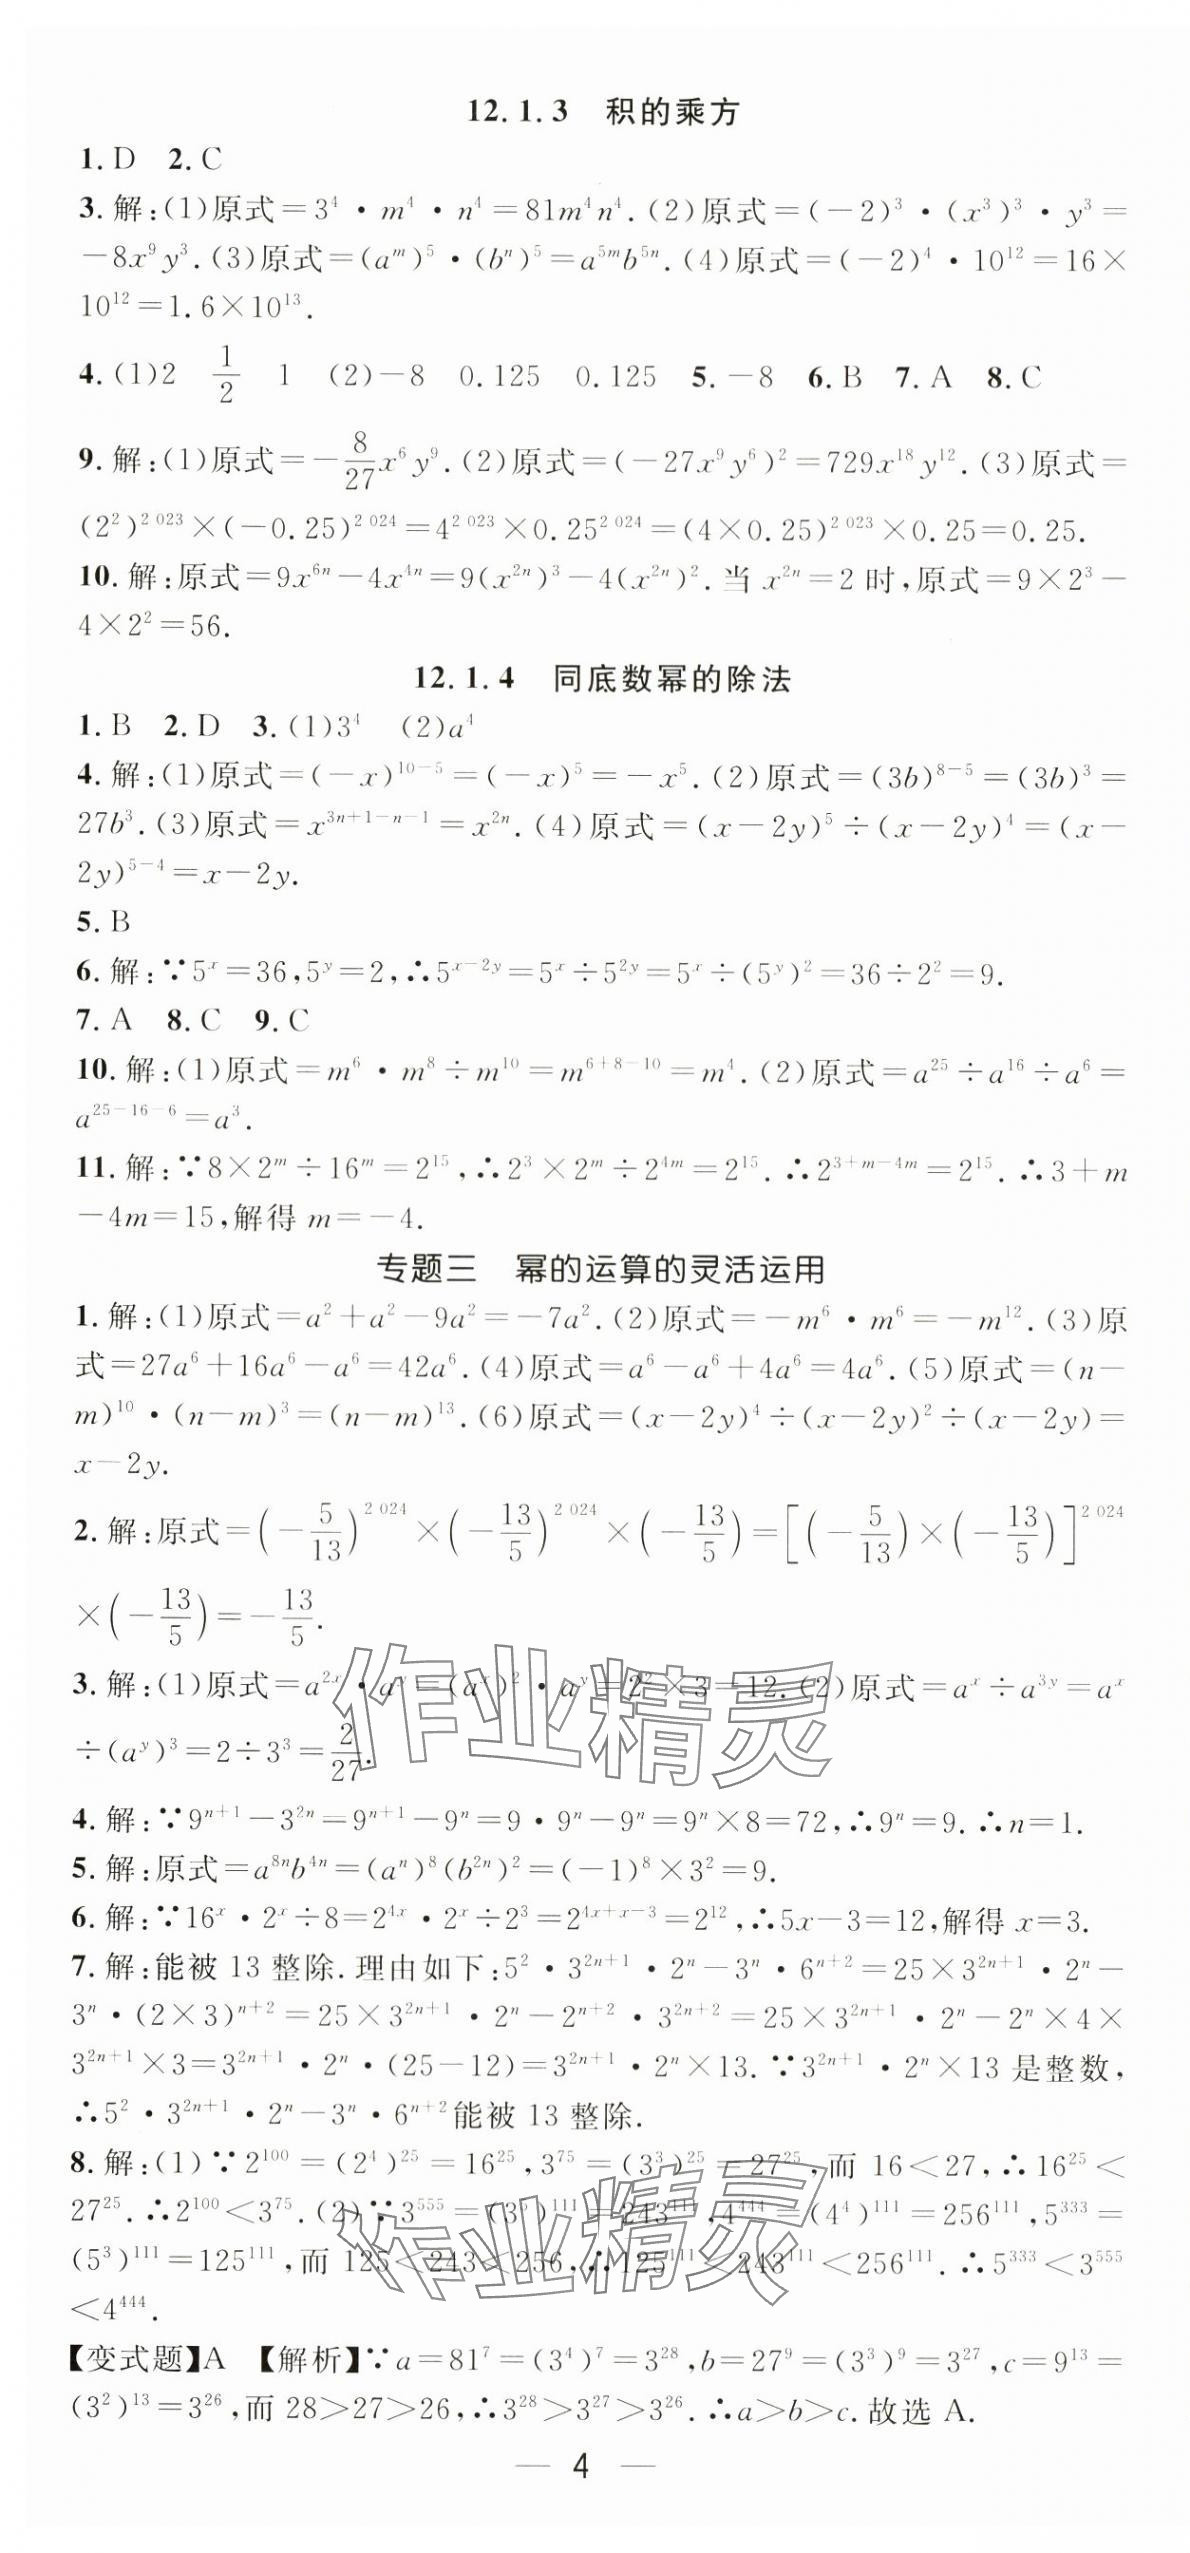 12.1.3 积的乘方
1.D 2.C
3.解:(1)原式=3⁴·m⁴·n⁴=81m⁴n⁴.(2)原式=(-2)³·(x³)³·y³=
-8x⁹y³.(3)原式=(aᵐ)⁵·(bⁿ)⁵=a⁵ᵐb⁵ⁿ.(4)原式=(-2)⁴·10¹²=16×
10¹²=1.6×10¹³.
4.(1)2 1/2 1 (2)-8 0.125 0.125 5.-8 6.B 7.A 8.C
9.解:(1)原式=-8/27x⁶y⁹.(2)原式=(-27x⁹y⁶)²=729x¹⁸y¹².(3)原式=
(2²)²⁰²³×(-0.25)²⁰²⁴=4²⁰²³×0.25²⁰²⁴=(4×0.25)²⁰²³×0.25=0.25.
10.解:原式=9x⁶ⁿ-4x⁴ⁿ=9(x²ⁿ)³-4(x²ⁿ)².当 x²ⁿ=2 时,原式=9×2³-
4×2²=56.
12.1.4 同底数幂的除法
1.B 2.D 3.(1)3⁴ (2)a⁴
4.解:(1)原式=(-x)¹⁰⁻⁵=(-x)⁵=-x⁵.(2)原式=(3b)⁸⁻⁵=(3b)³=
27b³.(3)原式=x³ⁿ⁺¹⁻ⁿ⁻¹=x²ⁿ.(4)原式=(x-2y)⁵÷(x-2y)⁴=(x-
2y)⁵⁻⁴=x-2y.
5.B
6.解:∵5ˣ=36,5ʸ=2,∴5ˣ⁻²ʸ=5ˣ÷5²ʸ=5ˣ÷(5ʸ)²=36÷2²=9.
7.A 8.C 9.C
10.解:(1)原式=m⁶·m⁸÷m¹⁰=m⁶⁺⁸⁻¹⁰=m⁴.(2)原式=a²⁵÷a¹⁶÷a⁶=
a²⁵⁻¹⁶⁻⁶=a³.
11.解:∵8×2ᵐ÷16ᵐ=2¹⁵,∴2³×2ᵐ÷2⁴ᵐ=2¹⁵.∴2³⁺ᵐ⁻⁴ᵐ=2¹⁵.∴3+m
-4m=15,解得 m=-4.
专题三 幂的运算的灵活运用
1.解:(1)原式=a²+a²-9a²=-7a².(2)原式=-m⁶·m⁶=-m¹².(3)原
式=27a⁶+16a⁶-a⁶=42a⁶.(4)原式=a⁶-a⁶+4a⁶=4a⁶.(5)原式=(n-
m)¹⁰·(n-m)³=(n-m)¹³.(6)原式=(x-2y)⁴÷(x-2y)²÷(x-2y)=
x-2y.
2.解:原式=(-5/13)²⁰²⁴×(-13/5)²⁰²⁴×(-13/5)=[(-5/13)×(-13/5)]²⁰²⁴
×(-13/5)=-13/5.
3.解:(1)原式=a²ˣ·aʸ=(aˣ)²·aʸ=2²×3=12.(2)原式=aˣ÷a³ʸ=aˣ
÷(aʸ)³=2÷3³=2/27.
4.解:∵9ⁿ⁺¹-3²ⁿ=9ⁿ⁺¹-9ⁿ=9·9ⁿ-9ⁿ=9ⁿ×8=72,∴9ⁿ=9.∴n=1.
5.解:原式=a⁸ⁿb⁴ⁿ=(aⁿ)⁸(b²ⁿ)²=(-1)⁸×3²=9.
6.解:∵16ˣ·2ˣ÷8=2⁴ˣ·2ˣ÷2³=2⁴ˣ⁺ˣ⁻³=2¹²,∴5x-3=12,解得 x=3.
7.解:能被 13 整除.理由如下:5²·3²ⁿ⁺¹·2ⁿ-3ⁿ·6ⁿ⁺²=25×3²ⁿ⁺¹·2ⁿ-
3ⁿ·(2×3)ⁿ⁺²=25×3²ⁿ⁺¹·2ⁿ-2ⁿ⁺²·3²ⁿ⁺²=25×3²ⁿ⁺¹·2ⁿ-2ⁿ×4×
3²ⁿ⁺¹×3=3²ⁿ⁺¹·2ⁿ·(25-12)=3²ⁿ⁺¹·2ⁿ×13.∵3²ⁿ⁺¹·2ⁿ×13 是整数,
∴5²·3²ⁿ⁺¹·2ⁿ-3ⁿ·6ⁿ⁺²能被 13 整除.
8.解:(1)∵2¹⁰⁰=(2⁴)²⁵=16²⁵,3⁷⁵=(3³)²⁵=27²⁵,而 16<27,∴16²⁵<
27²⁵.∴2¹⁰⁰<3⁷⁵.(2)∵3⁵⁵⁵=(3⁵)¹¹¹=243¹¹¹,4⁴⁴⁴=(4⁴)¹¹¹=256¹¹¹,5³³³=
(5³)¹¹¹=125¹¹¹,而 125<243<256,∴125¹¹¹<243¹¹¹<256¹¹¹.∴5³³³<3⁵⁵⁵
<4⁴⁴⁴.
【变式题】A 【解析】∵a=81⁷=(3⁴)⁷=3²⁸,b=27⁹=(3³)⁹=3²⁷,c=9¹³=
(3²)¹³=3²⁶,而 28>27>26,∴3²⁸>3²⁷>3²⁶.∴a>b>c.故选 A.
— 4 —
作业精灵
作业精灵